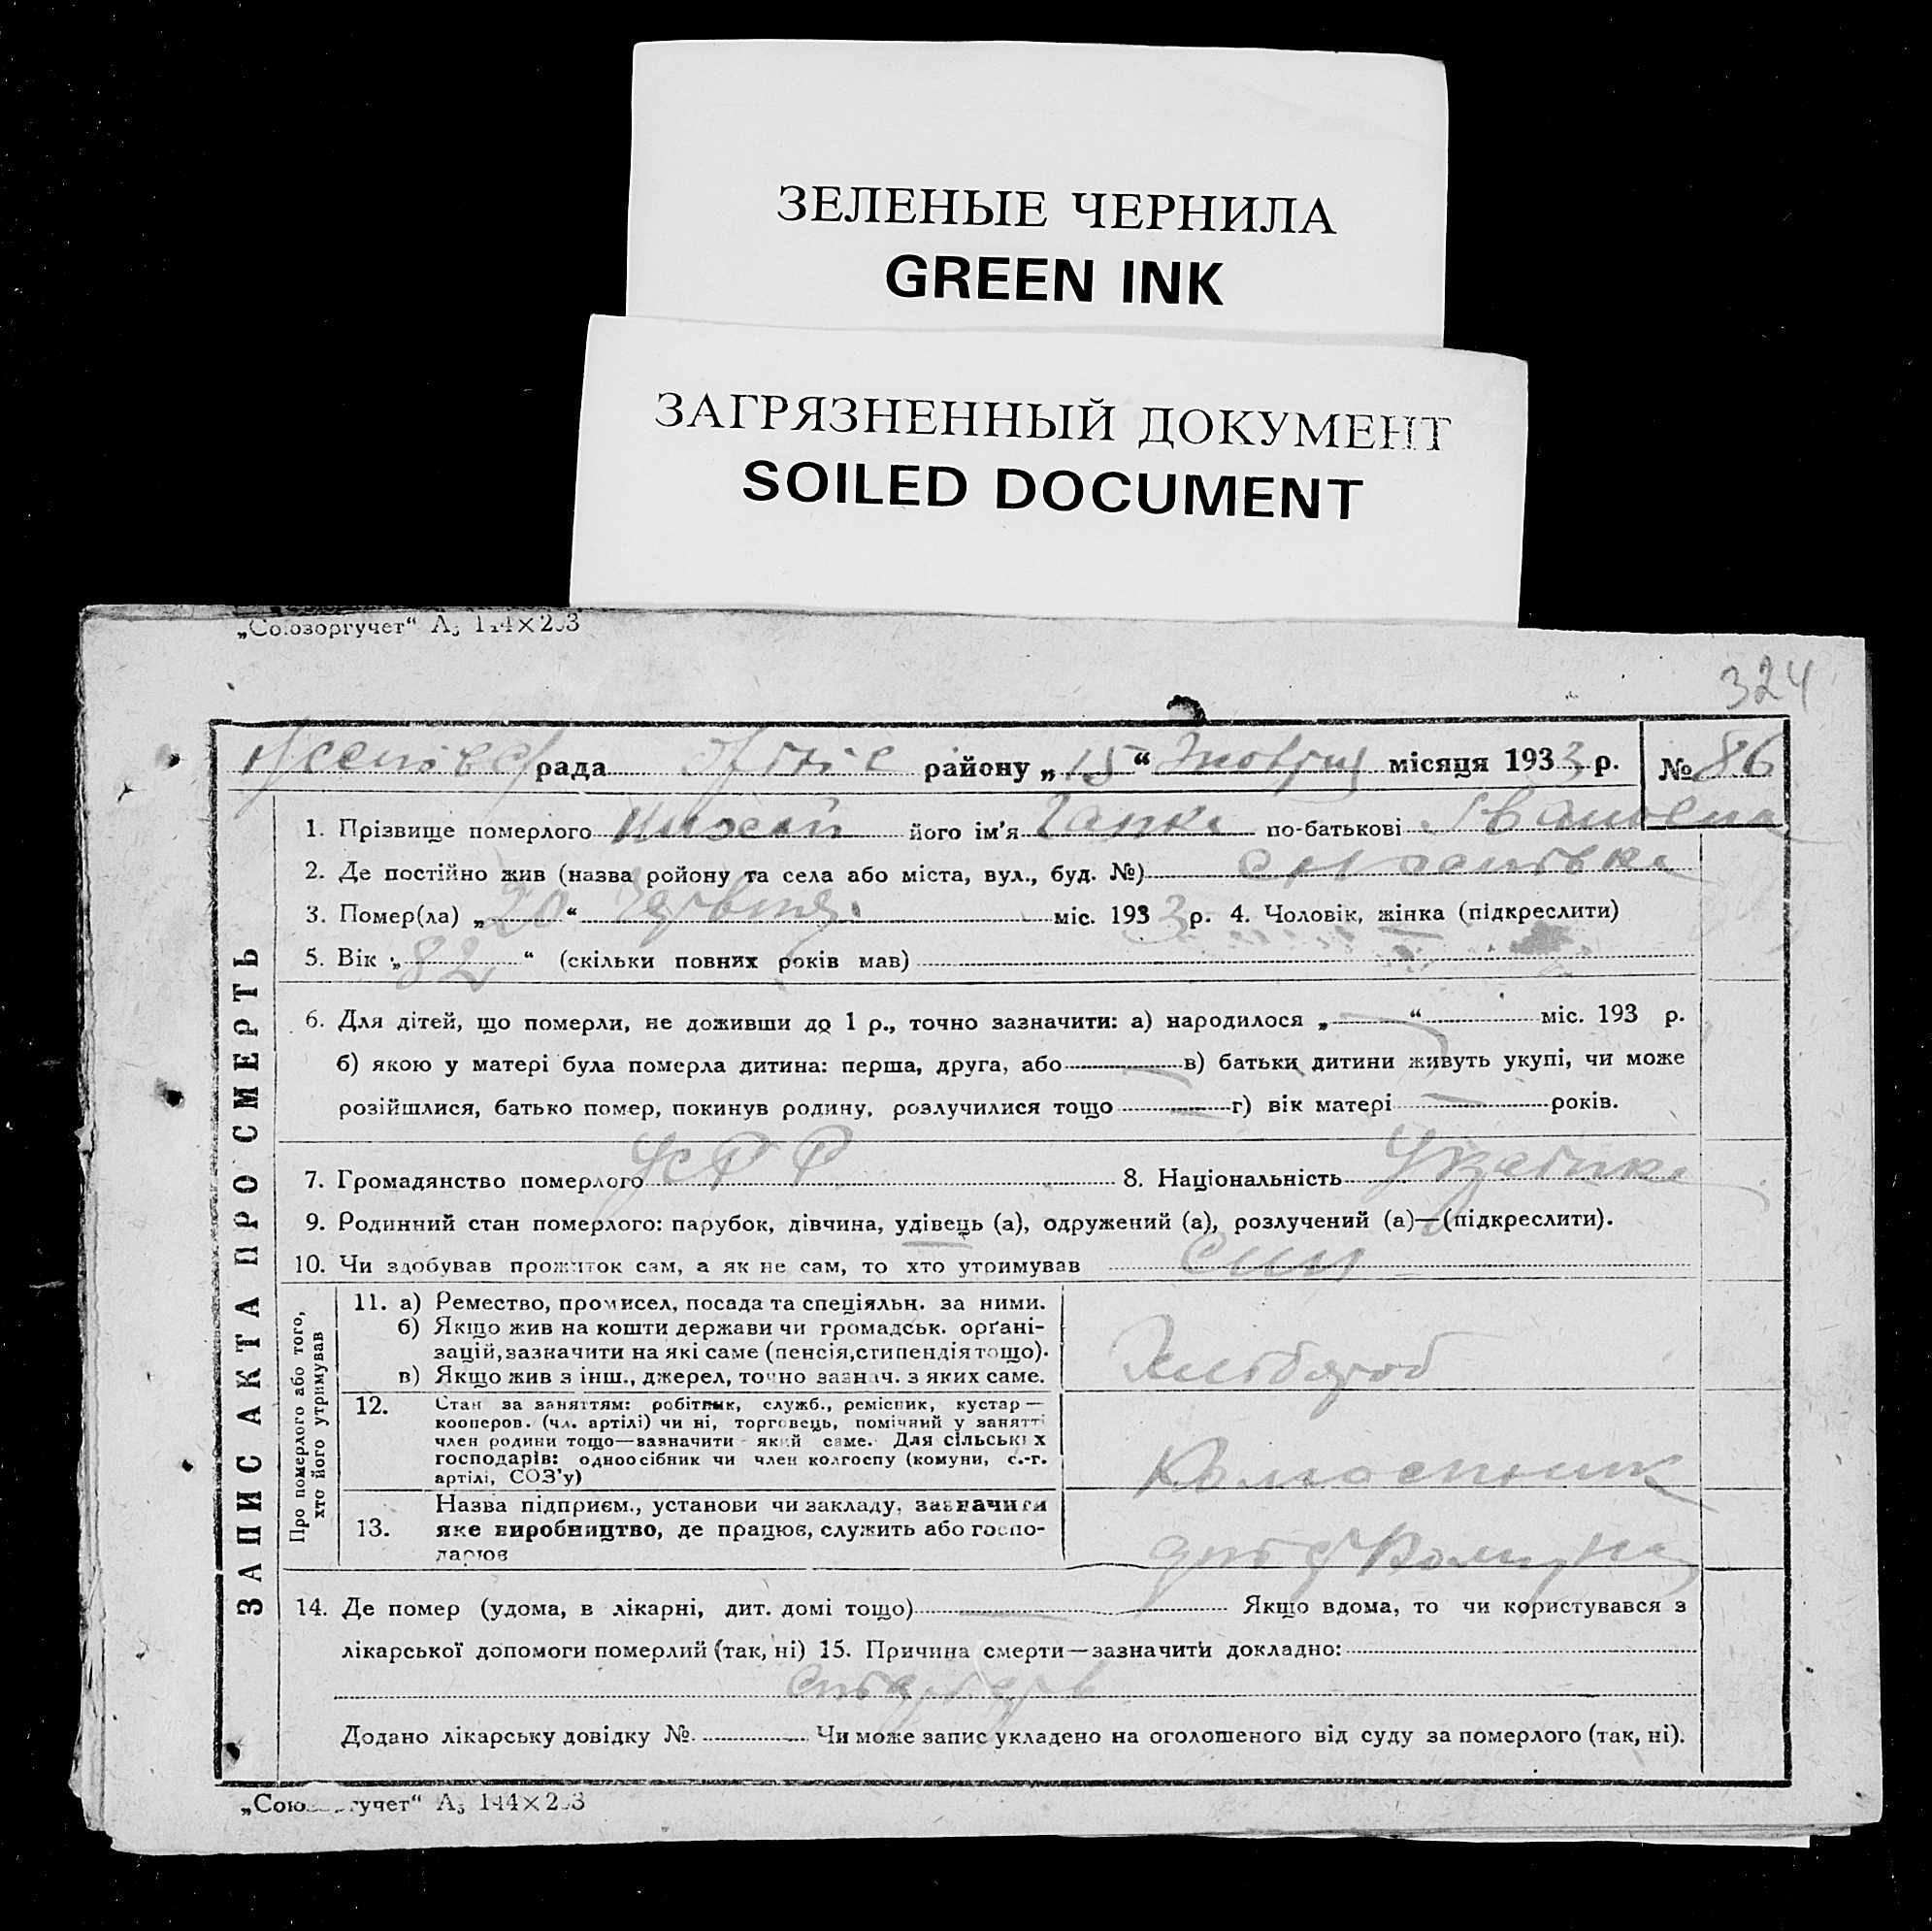 ЗЕЛЕНЫЕ ЧЕРНИЛА
GREEN INK
ЗАГРЯЗНЕННЫЙ ДОКУМЕНТ
SOILED DOCUMENT
„Союзоргучет“ А₅
324
рада району „15“ Жовтня місяця 1933 р. № 86
1. Прізвище померлого його ім'я Гапка по-батькові Івановна
2. Де постійно жив (назва ройону та села або міста, вул., буд. №)
3. Помер(ла) „20“ Червня міс. 1933 р. 4. Чоловік, жінка (підкреслити)
5. Вік „82“ (скільки повних років мав)
6. Для дітей, що померли, не доживши до 1 р., точно зазначити: а) народилося „—“ міс. 193 р.
б) якою у матері була померла дитина: перша, друга, або — в) батьки дитини живуть укупі, чи може
розійшлися, батько помер, покинув родину, розлучилися тощо — г) вік матері — років.
7. Громадянство померлого УСРР 8. Національність
9. Родинний стан померлого: парубок, дівчина, удівець (а), одружений (а), розлучений (а)—(підкреслити).
10. Чи здобував прожиток сам, а як не сам, то хто утримував син
ЗАПИС АКТА ПРО СМЕРТЬ
Про померлого або того, хто його утримував
11. а) Ремество, промисел, посада та спеціяльн. за ними.
б) Якщо жив на кошти держави чи громадськ. орґані-
зацій, зазначити на які саме (пенсія, стипендія тощо).
в) Якщо жив з інш., джерел, точно зазнач. з яких саме.
Хлібороб
12. Стан за заняттям: робітник, служб., ремісник, кустар—
кооперов. (чл. артілі) чи ні, торговець, помічний у занятті
член родини тощо—зазначити який саме. Для сільських
господарів: одноосібник чи член колгоспу (комуни, с.-г.
артілі, СОЗ'у)
Колгоспник
13. Назва підприєм., установи чи закладу, зазначити
яке виробництво, де працює, служить або госпо-
дарює
14. Де помер (удома, в лікарні, дит. домі тощо) — Якщо вдома, то чи користувався з
лікарської допомоги померлий (так, ні) 15. Причина смерти—зазначити докладно:
Додано лікарську довідку №. Чи може запис укладено на оголошеного від суду за померлого (так, ні).
А₅